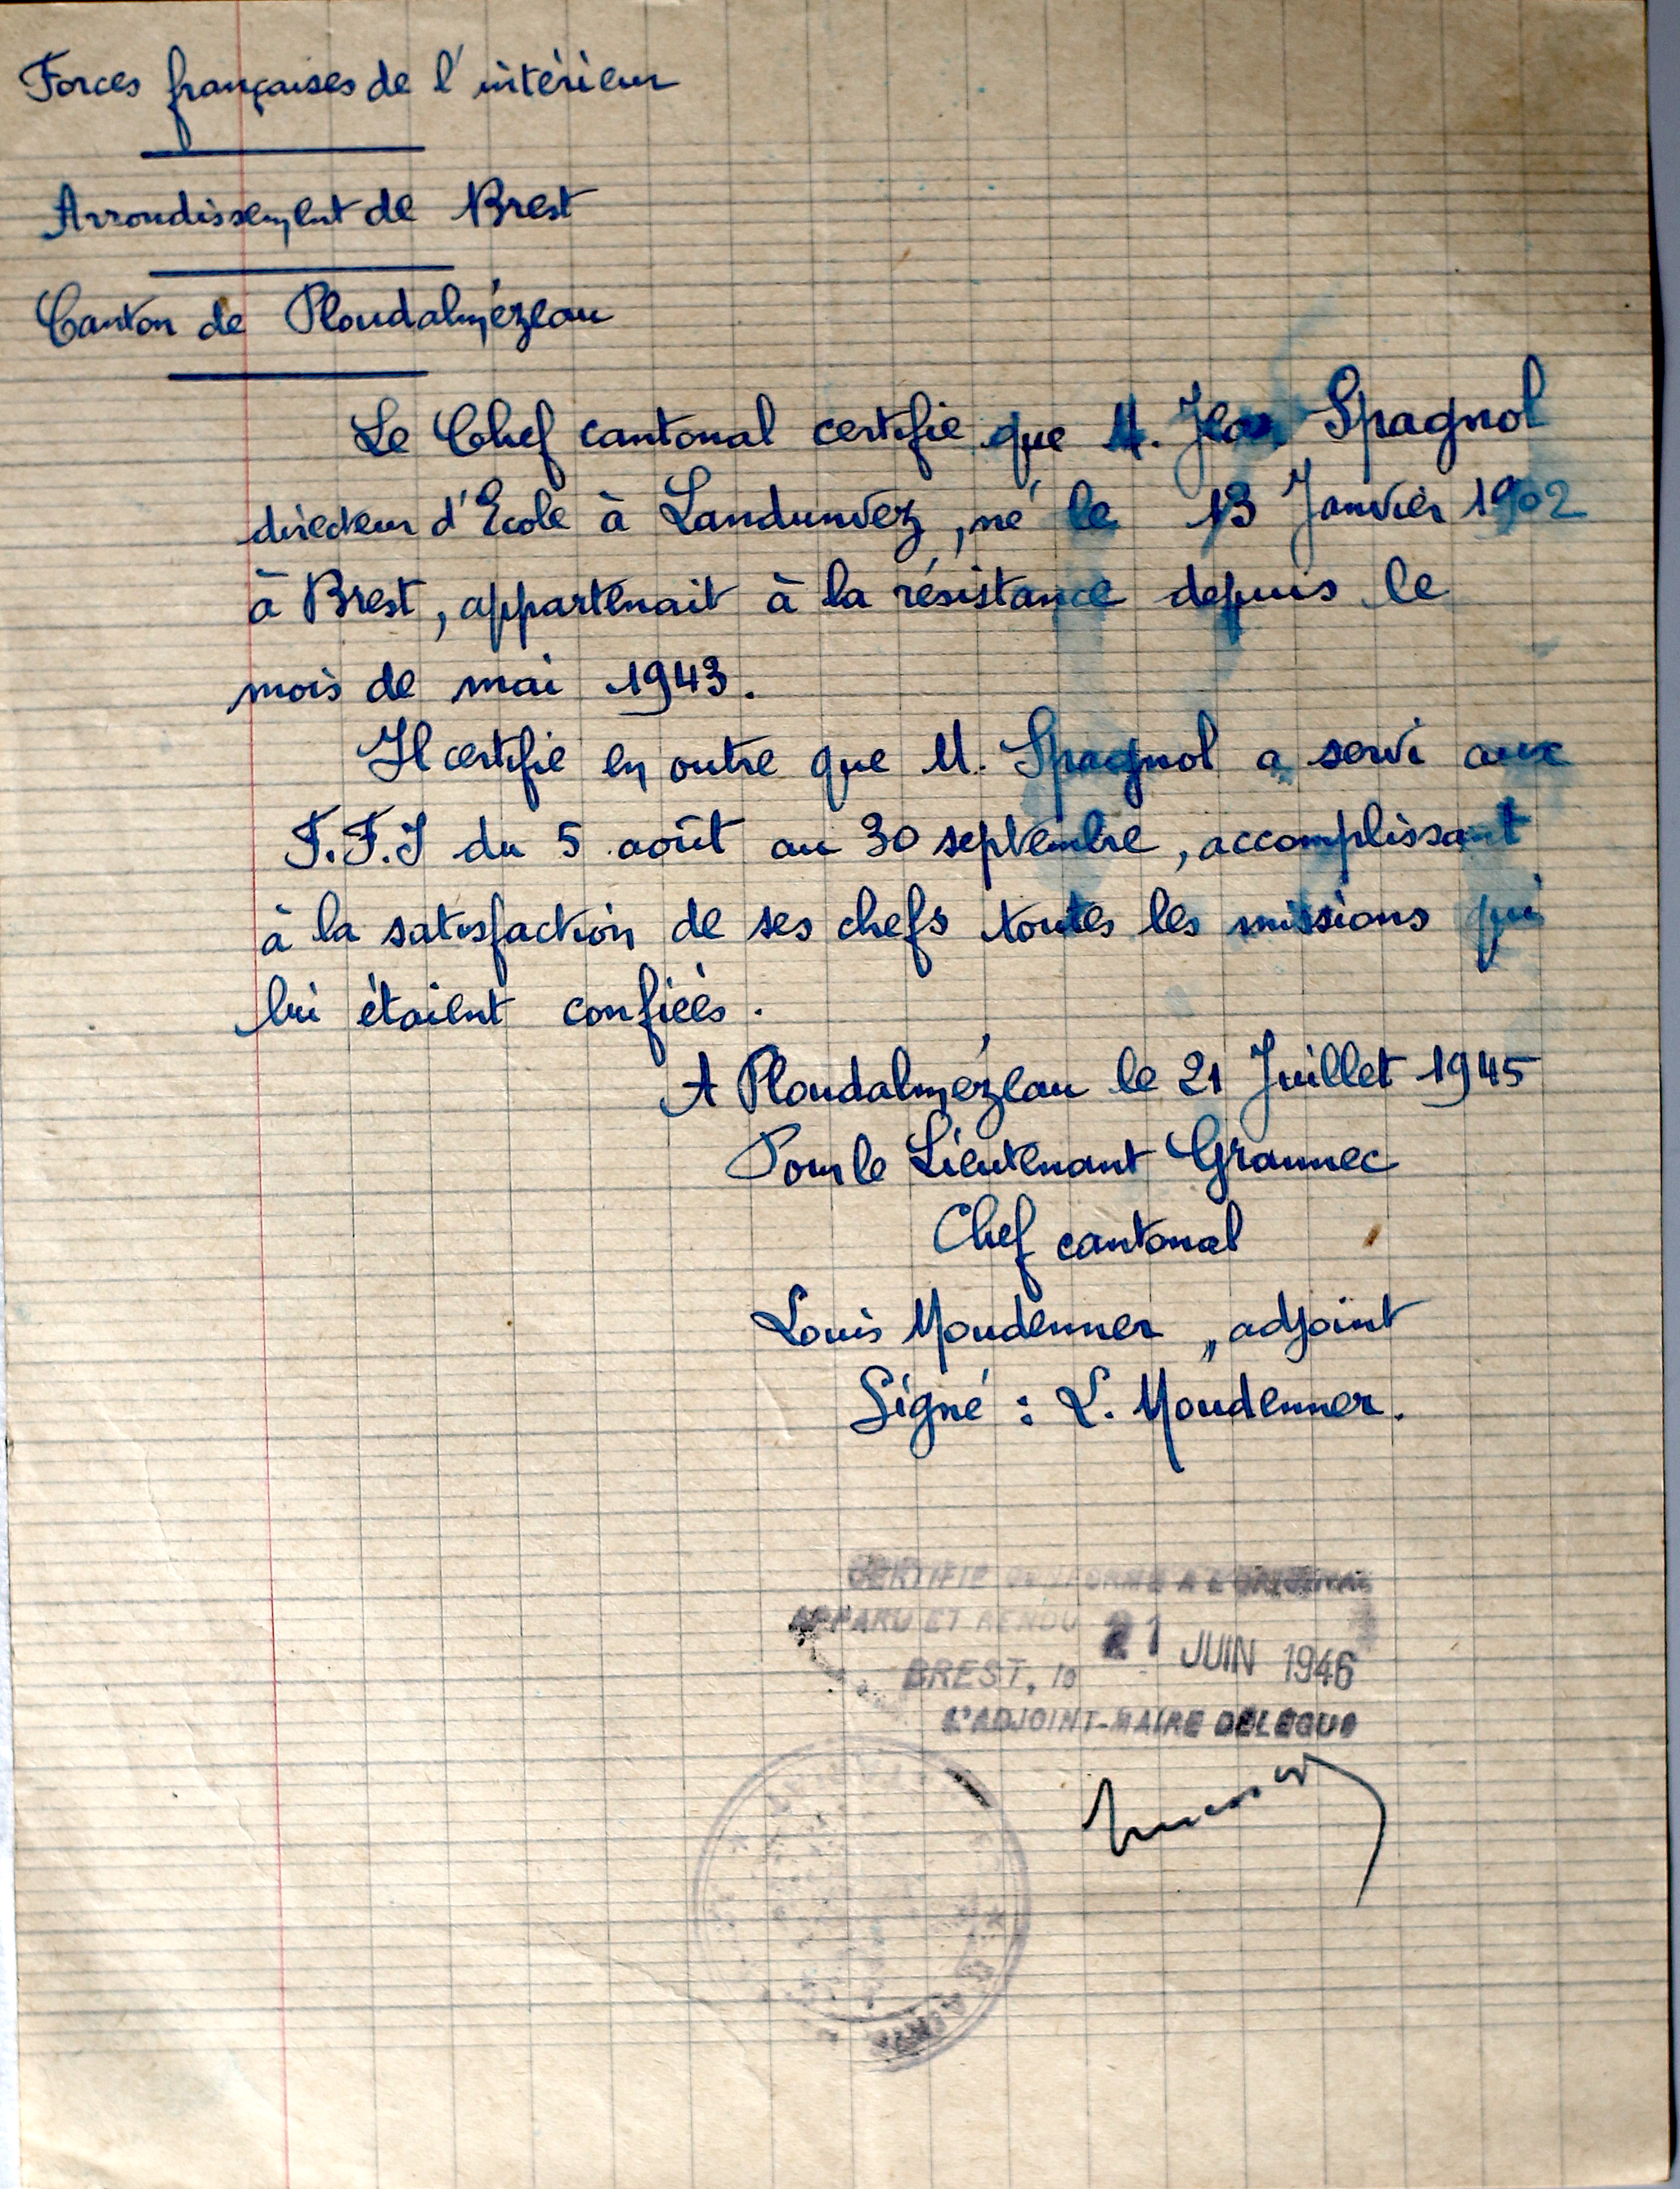 Forces françaises de l'intérieur
Arrondissement de Brest
Canton de Ploudalmézeau
Le Chef cantonal certifie que M. Jean Spagnol
directeur d'Ecole à Landunvez, né le 13 Janvier 1902
à Brest, appartenait à la résistance depuis le
mois de mai 1943.
Il certifie en outre que M. Spagnol a servi aux
F.F.I du 5 août au 30 septembre, accomplissant
à la satisfaction de ses chefs toutes les missions qui
lui étaient confiées.
A Ploudalmézeau le 21 Juillet 1945
Pour le Lieutenant Grannec
Chef cantonal
Louis Moudenner, adjoint
Signé : L. Moudenner.
CERTIFIE CONFORME A L'ORIGINAL
APPARU ET RENDU
21 JUIN 1946
BREST, le
L'ADJOINT-MAIRE DELEGUE